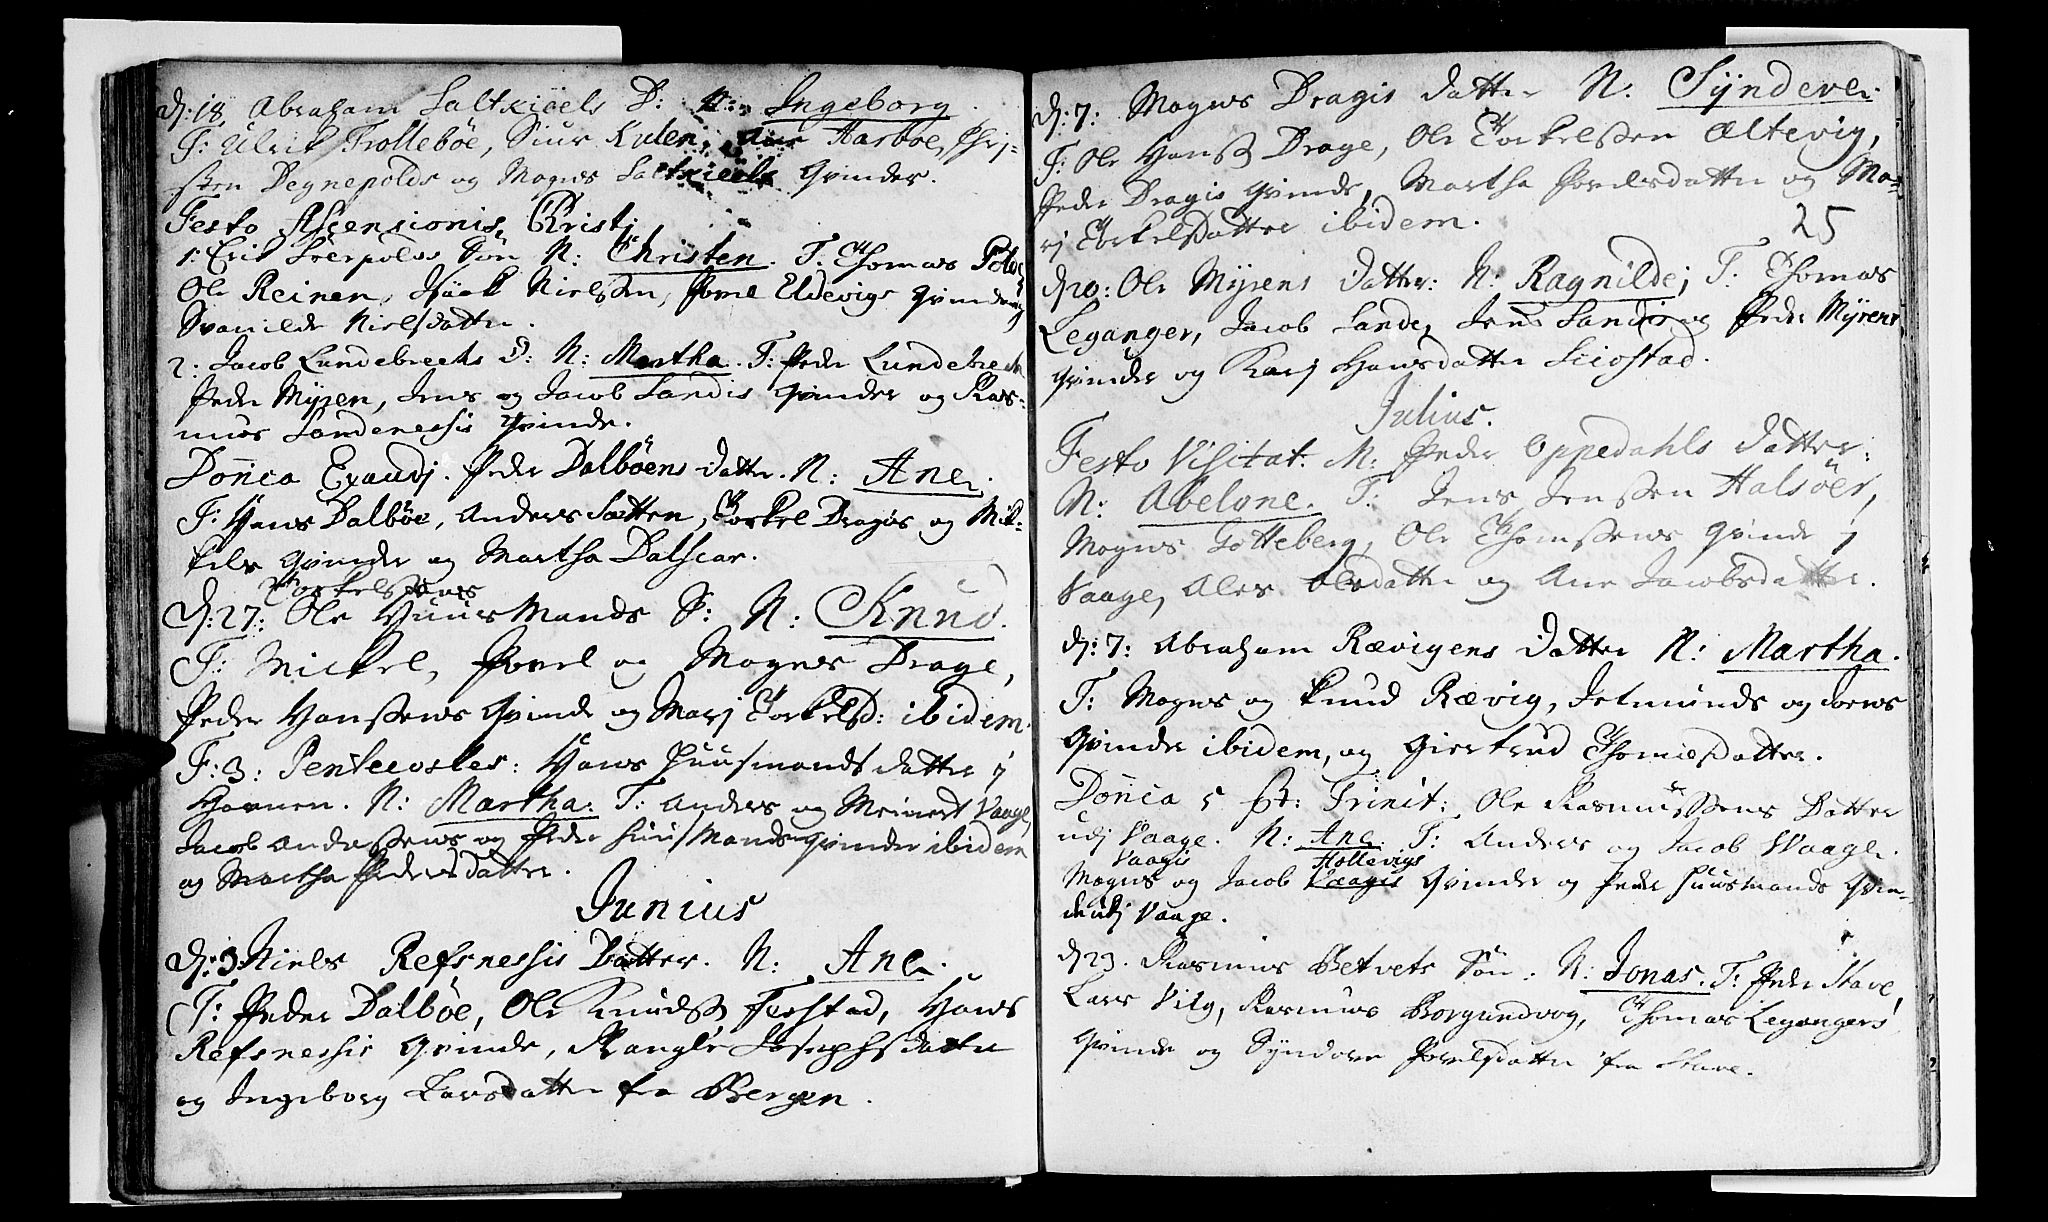 d: 18, Abraham Saltkieels D: N: Ingeborg.
T: Ulrik Trollebøe, Siur Kulen, Aarsbøe, Chri-
sten Degnepolds og Mogns Saltkieels Qvinder.
Festo Ascensionis Christi
1: Eric Leerpolds Søn N: Christen. T. Thomas Pold
Ole Reinen, Niels̄en, Povel Eldevigs Qvinder og
Svanilde Nielsdatter.
2: Jacob Lundebrechs D: N: Martha. T: Peder Lundebrech
Peder Myren, Jens og Jacob Sandis Qvinder og Ras-
mus Sandenessis Qvinde.
Dom̄ca Exaudj. Peder Dalbøens datter. N: Ane.
T: Hans Dalbøe, Anders Sætten, Torkel Dragis og Mik-
kels Qvinder og Martha Dalscar.
Torkelssøns
d: 27: Ole Huus Mands S: N: Knud.
T: Mickel, Povel og Mogns Drage,
Peder Hanssens Qvinde og Marj Torkelsd: ibidem.
F: 3: Pentecostes: Hans Huusmands datter j
Havnen. N: Martha. T: Anders og Meinert Vaage,
Jacob Anderssens og Peder Huusmands Qvinder ibidem
og Martha Pedersdatter.
Junius
d: 3 Niels Refsnessis Datter. N: Ane.
T: Peder Dalbøe, Ole Knuds Ferstad, Hans
Refsnessis Qvinde, Rangle Josephsdatter
og Ingeborg Larsdatter fra Bergen.
d: 7: Mogns Dragis datter N: Syndeve.
T: Ole Hanss Drage, Ole Torkelssen Altevig,
Peder Dragis Qvinde, Martha Povelsdatter og Ma-
rj Torkelsdatter ibidem.
25
d 20: Ole Myrens datter: N: Ragnilde; T: Thomas
Leganger, Jacob Sande, Jens Sandis og Peder Myrens
Qvinder og Karj Hansdatter Sciostad.
Julius.
Festo Visitat. M: Peder Oppedahls datter:
N: Abelone. T: Jens Jenssen Halsøer,
Mogns Gotteberg, Ole Thomssens Qvinde j
Vaage, Ales Olsdatter og Ane Jacobsdatter.
d: 7: Abraham Rævigens datter N: Martha.
T: Mogns og Knud Rævig, Jetmunds og Joens
Qvinder ibidem, og Giertrud Thomesdatter.
Dom̄ca 5 pt: Trinit: Ole Rasmussens Datter
udj Vaage. N: Ane. T: Anders og Jacob Waage.
Vaagis Hollevigs
Mogns og Jacob Vaagis Qvinder og Peder Huusmands Qvin-
de udj Vaage.
d 23. Rasmus Betvets Søn. N: Jonas. T: Peder Stave,
Lars Vilg, Rasmus Borgundvog, Thomas Legangers
Qvinde og Syndove Povelsdatter fra Stave.